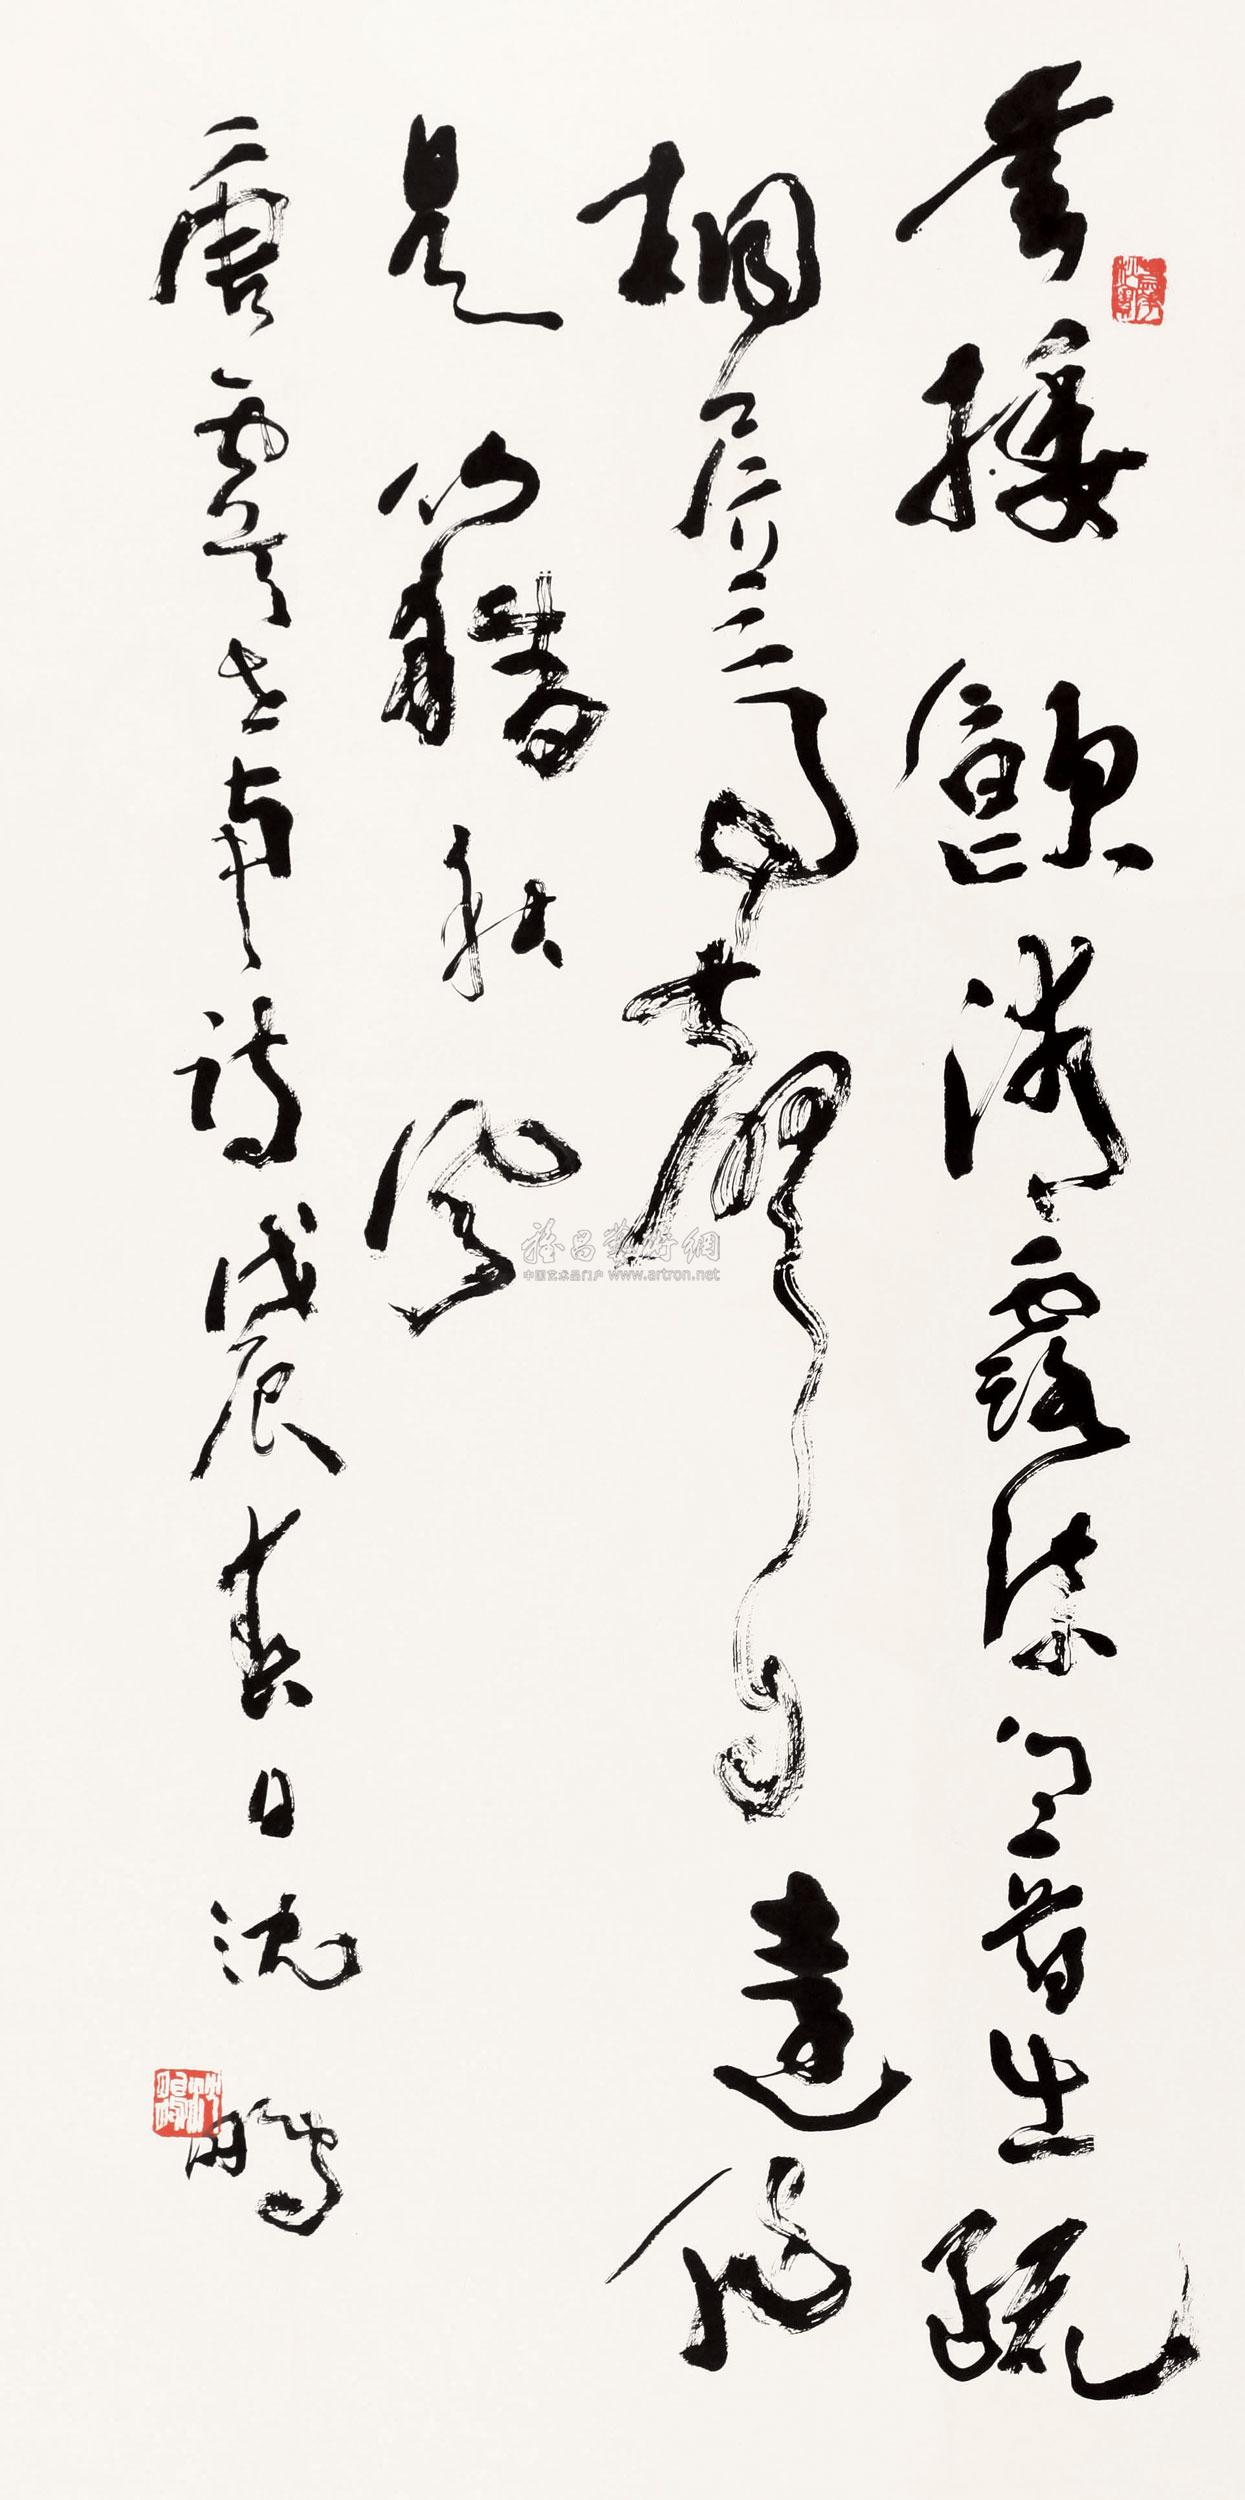 垂緌飲清露流響出疏
桐居高聲自遠非
是籍秋風
唐虞世南詩戊辰春日沈鵬
雅昌藝術網
中国艺术品门户 www.artron.net